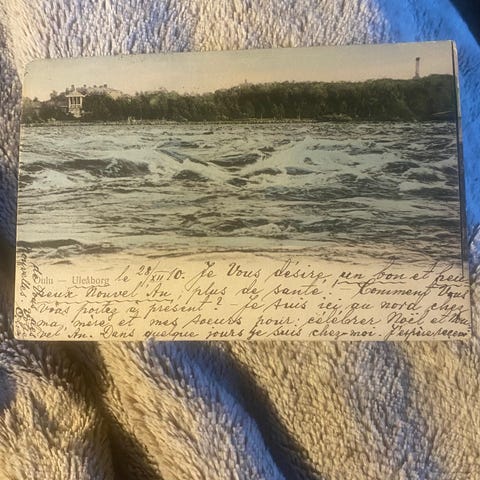 Oulu — Uleåborg
le 28/XII 10. Je Vous désire un bon et heu
reux Nouvel An, plus de santé! Comment Vous
Vous portez à présent? — Je suis ici au nord chez
ma mère et mes soeurs pour célébrer Noël et Nou
vel An. Dans quelque jours je suis chez-moi. J'espère recev